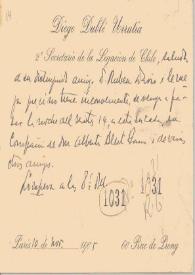 Diego Dublé Urrutia
2º Secretario de la Legación de Chile, saluda
a su distinguido amigo D. Rubén Darío i le rue
ga que, si no tiene inconveniente, se venga a pa
sar la noche del Martes 14, a esta su casa, en
compañía de don Alberto Blest Gana i de varios
otros amigos.
Lo espera a las 8½
1031
1331
París 12 de Nov. 1905
60 Rue de